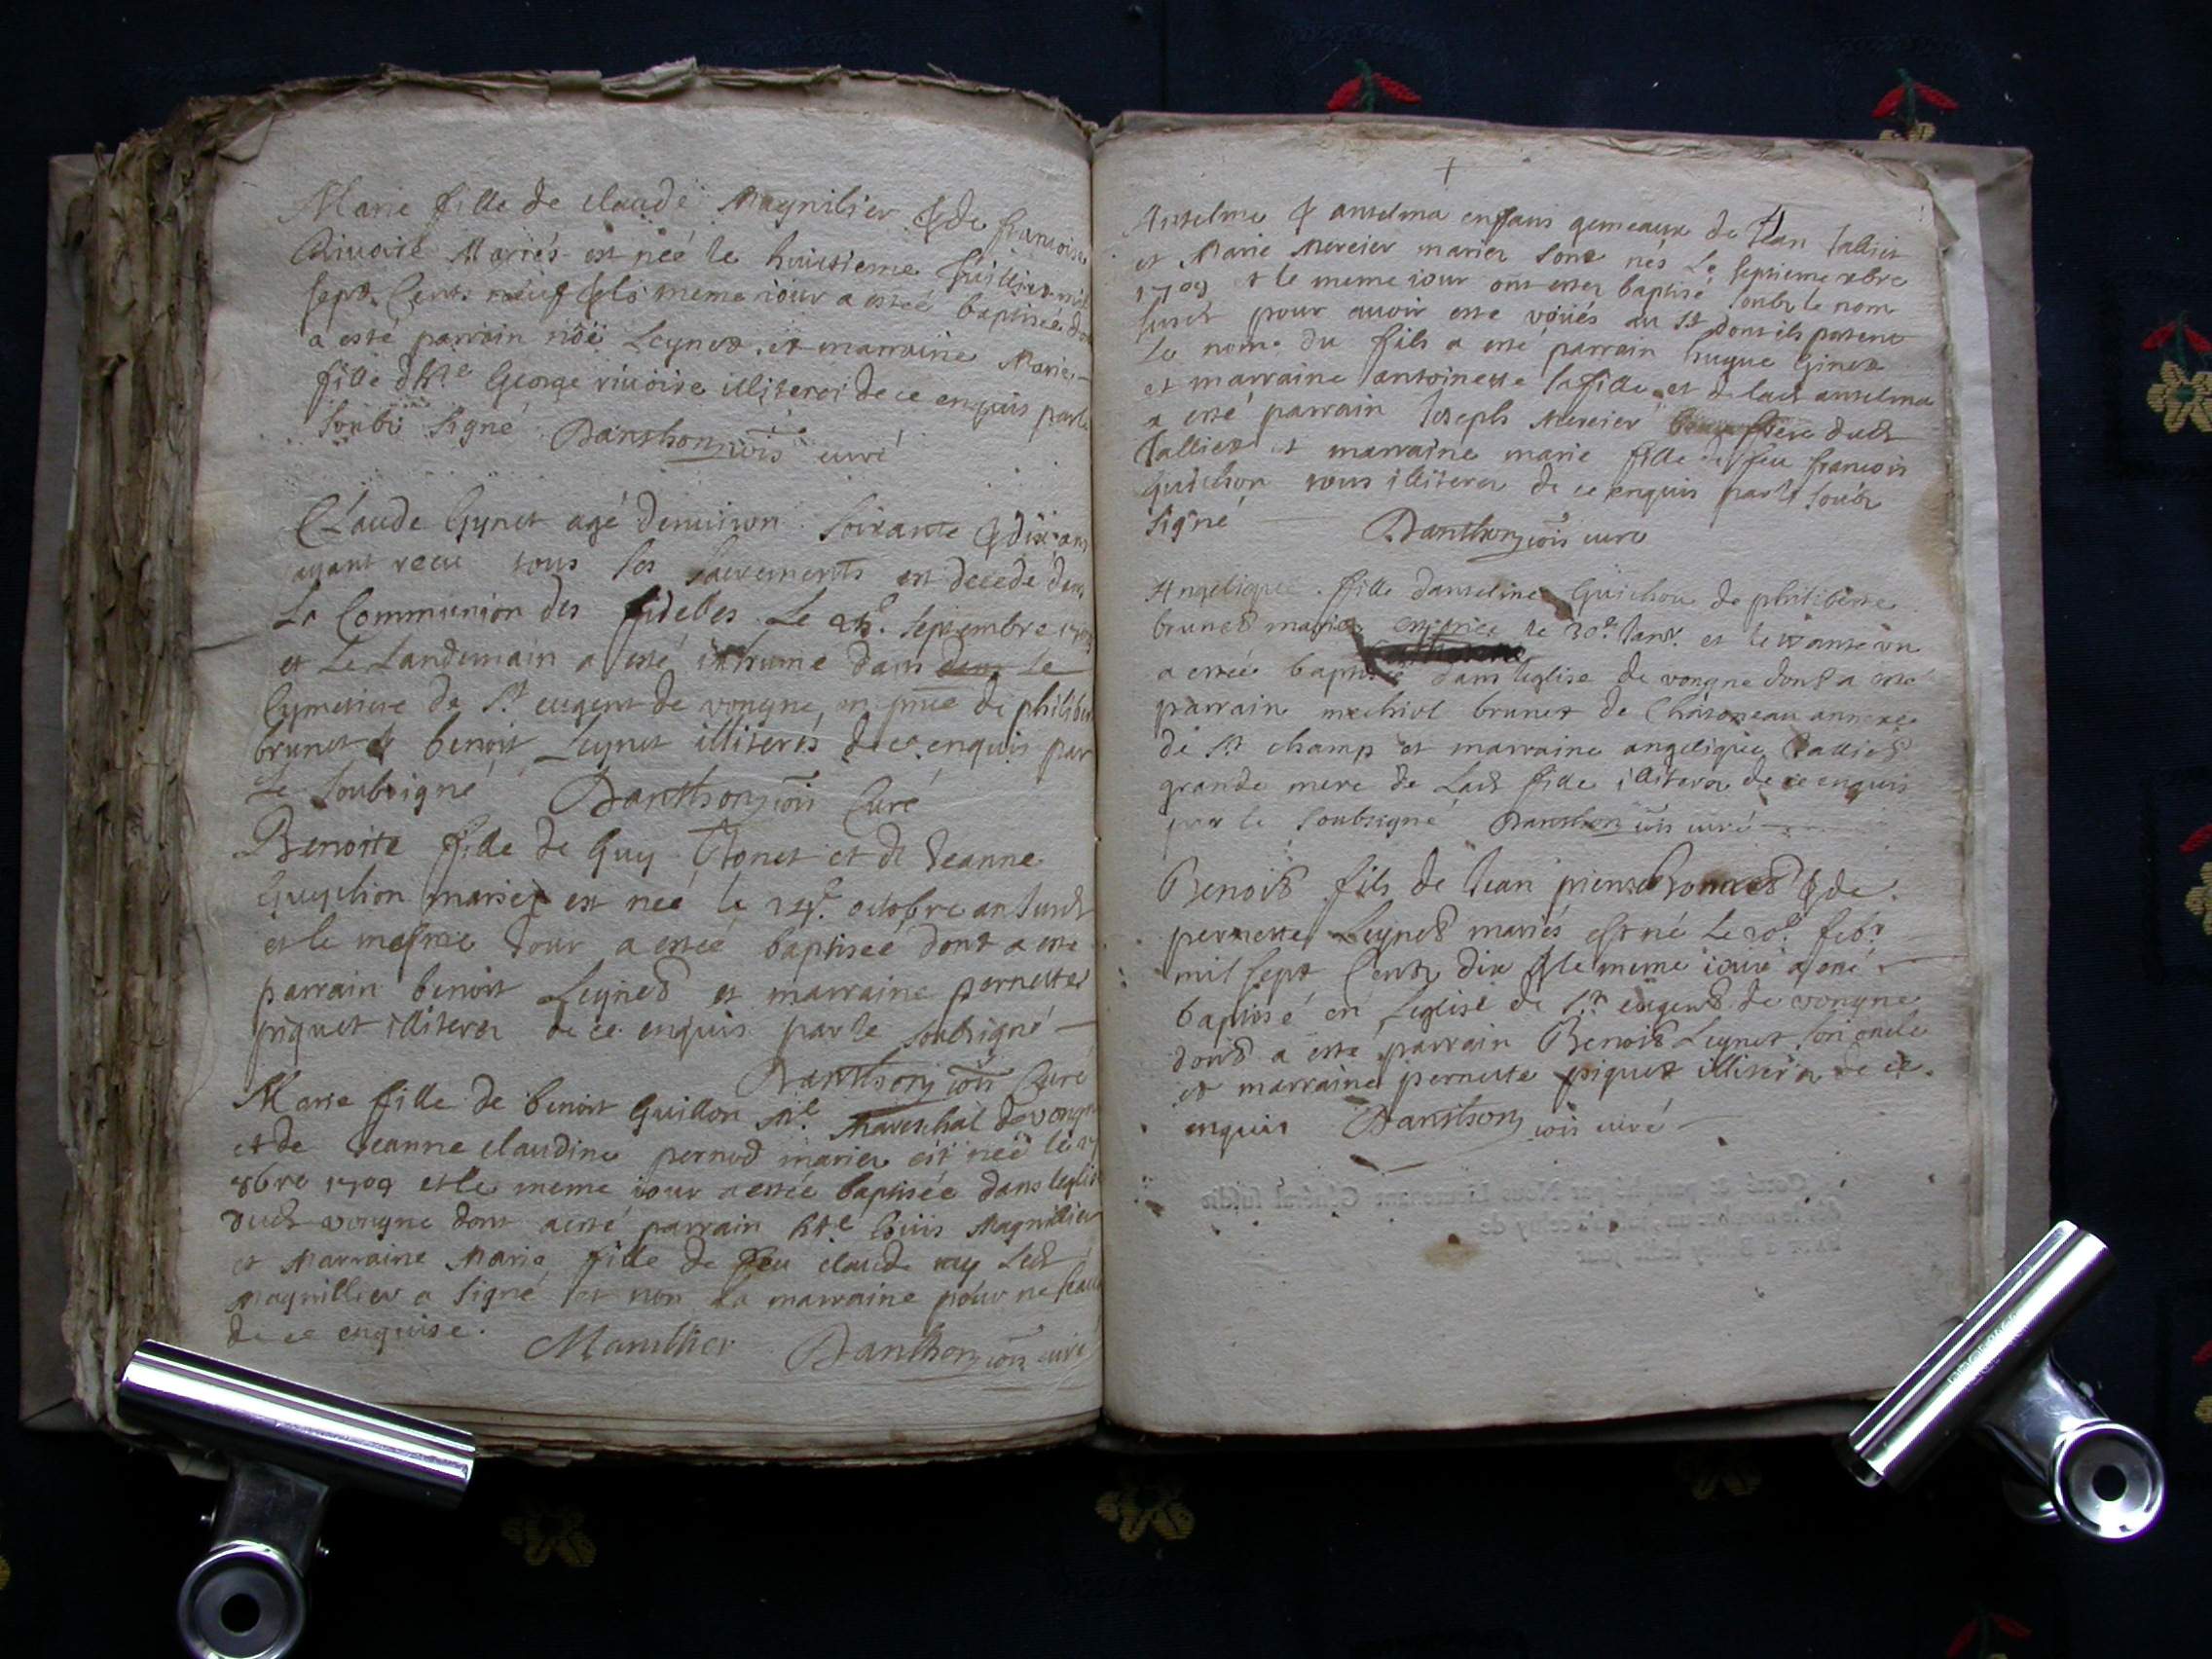 Marie fille de claude Magnilier & de francoise
Rivoire Mariés est née le huictieme juillier mil
sept Cents neuf & le meme iour a esteé baptisée don
a esté parrain noë Leynet et marraine Marie
fille d'hte George rivoire illiterés de ce enquis par le
soubs signé Danthony curé
Claude Gynet agé denuiron soixante & dix ans
ayant receu tous les sacrements est decedé dans
La Communion des fidelles Le septembre 1709
et Le Landemain a esté inhumé dans le
Cymetiere de St eugent de vongne en pnce de philibert
brunet & benoit Leynet illiterés de ce enquis par
Le soubsigné Danthony Curé
Benoite fille de Guy et de Jeanne
Guychon mariez est neé le octobre an susdt
et le mesme Jour a esteé baptiseé dont a este
parrain benoit Leynet et marraine pernette
piquet illiterez de ce enquis par le soubsigné
Danthony Curé
Marie fille de benoit Guillon Mareschal de vongne
et de Jeanne claudine pernod mariez est neë le 27
8bre 1709 et le meme iour a estée baptisée dans leglise
dudt vongne dont a esté parrain hte Louis Magnillier
et Marraine Marie fille de feu claude ray Ledt
Magnillier a signé et non la marraine pour ne scau
de ce enquise. Danthony curé
+
Anselme & anselma enfans gemeaux de Jean Talliet
et Marie Mercier mariez sont nés Le septieme xbre
1709 et le meme iour ont estez baptisé soubz le nom
susdt pour avoir esté voüés au St dont ils portent
Le nome du fils a esté parrain hugue Ginet
et marraine antoinette sa fille et de ladt anselma
a esté parrain Joseph Mercier frere dudt
Talliet et marraine marie fille de feu francois
Guichon tous illiterez de ce enquis par le soubz
signé Danthony curé
Angelique fille danselme Guichon de philiberte
brunet mariez est neé le 30e Janr et le trante un
a esteé baptisée dans leglise de vongne dont a esté
parrain melchiol brunet de Chatoneau annexe
de St champ et marraine angelique Talliet
grande mere de Ladt fille illiterez de ce enquis
par le soubsigné Danthony curé
Benoit fils de Jean pierre & de
pernette Leynet mariés est né Le 20e febr
mil sept Cents dix & le meme iour a esté
baptisé en Leglise de St eugent de vongne
dont a este parrain Benoit Leynet son oncle
et marraine pernette piquet illiterez de ce
enquis Danthony curé